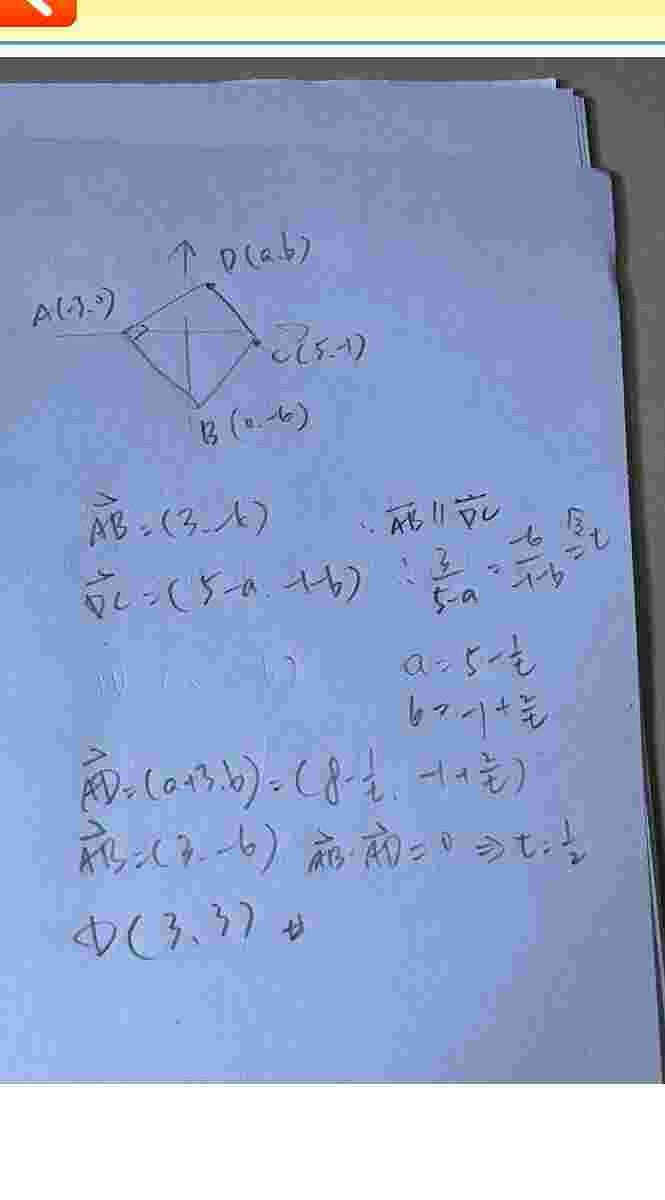 D(a,b)
A(-3,0)
C(5,-1)
B(0,-6)
AB=(3,-6) ∵ AB∥DC
DC=(5-a,-1-b) ∴ 3/(5-a) = -6/(-1-b) 即= t
a=5-1/t
b=-1+2/t
AD=(a+3,b)=(8-1/t, -1+2/t)
AB=(3,-6) AB·AD=0 ⇒ t=1/2
D(3,3) #